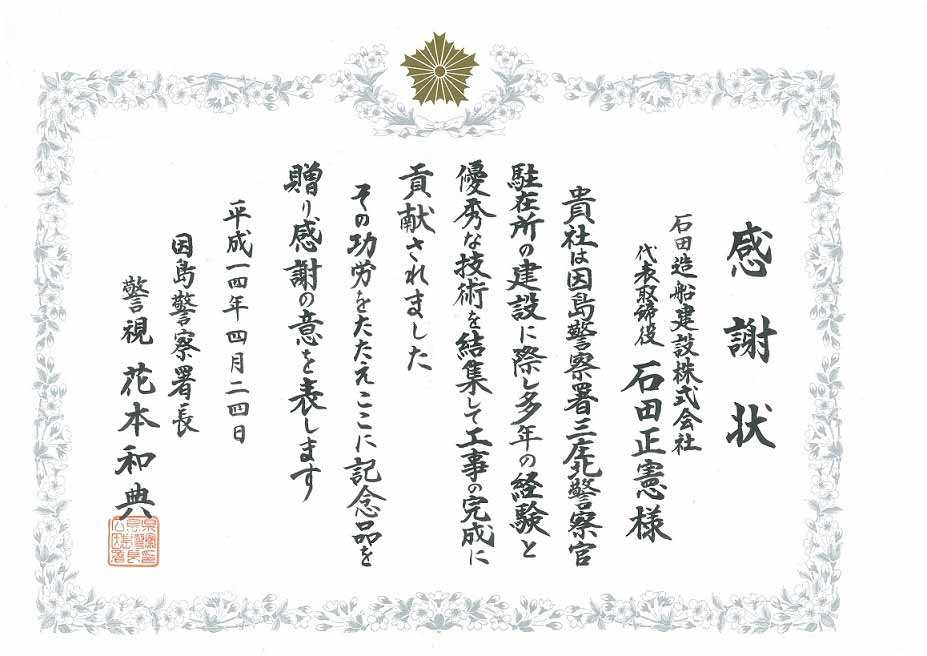 感謝状
石田造船建設株式会社
代表取締役 石田正憲様
貴社は因島警察署三庄北警察官
駐在所の建設に際し多年の経験と
優秀な技術を結集して工事の完成に
貢献されました
その功労をたたえここに記念品を
贈り感謝の意を表します
平成一四年四月二四日
因島警察署長
警視 花本和典